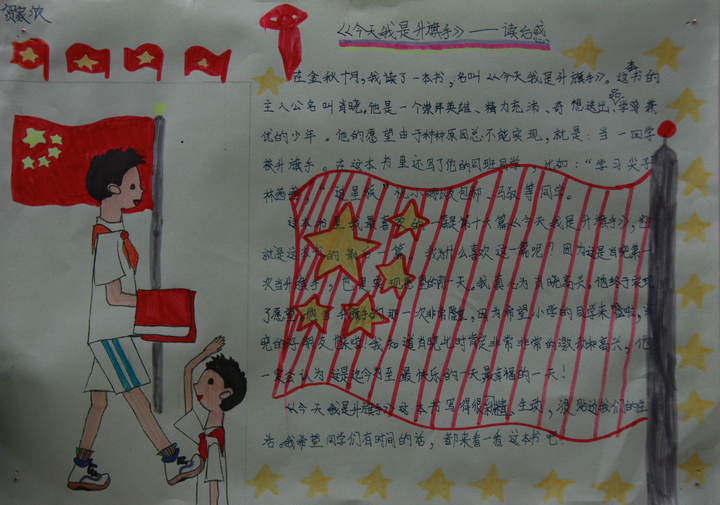 贺家浓
《今天我是升旗手》——读后感
在金秋十月，我读了一本书，名叫《今天我是升旗手》。这本书的
主人公名叫肖晓，他是一个崇拜英雄、精力充沛、奇想迭出、品学兼
优的少年。他的愿望由于种种原因总不能实现，就是：当一回学
校升旗手。在这本书里还写了他的同班同学，比如：“学习尖子”
林茜茜、“ 包郝、马驭等同学。
这本书里我最喜欢的一篇是第十六篇《今天我是升旗手》，也
就是这本书的最后一篇，我为什么喜欢这一篇呢？因为这是肖晓第一
次当升旗手，也是实现愿望的一天。我真心为肖晓高兴，他终于实现
了愿望。他当升旗手的那一次非常隆重，因为希望小学的同学来啦，肖
晓的好朋友 来啦！我知道肖晓此时肯定非常非常的激动和高兴，他
一定会认为这是迄今为止最快乐的一天最幸福的一天！
《今天我是升旗手》这本书写得很 、生动，很贴近我们的生
活。我希望同学们有时间的话，都来看一看这本书吧！